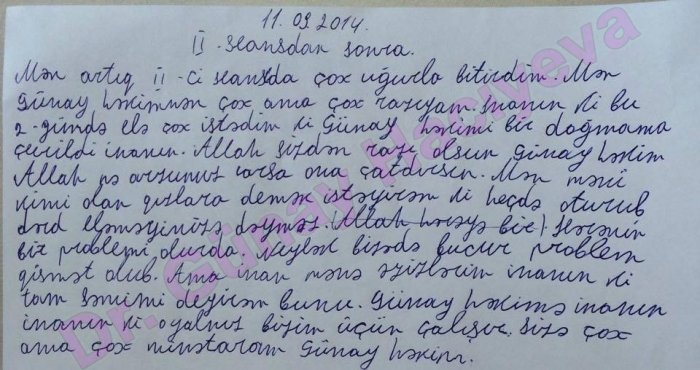 11.09.2014.
II-seansdan sonra.
Mən artıq II-ci seansda çox uğurla bitirdim. Mən
Günay həkimnən çox ama çox razıyam. inanın ki bu
2-gündə elə çox istədim ki Günay həkimi bir doğmama
çevrildi inanın. Allah sizdən razı olsun Günay həkim
Allah nə arzunuz varsa ona çatdırsın. Mən mənii
kimi olan qızlara demək istəyirəm ki heçdə oturub
dərd eləməyinizə dəyməz. Allah hərəyə bir) Hərənin
bir problemi olurda. Neylək bizədə bucur problem
qismət olub. Ama inan mənə əzizlərim inanın ki
tam səmimi deyirəm bunu. Günay həkimə inanın
inanın ki o yalnız bizim üçün çalışır. Sizə çox
ama çox minətaram Günay həkim.
Dr. Günay Hacıyeva